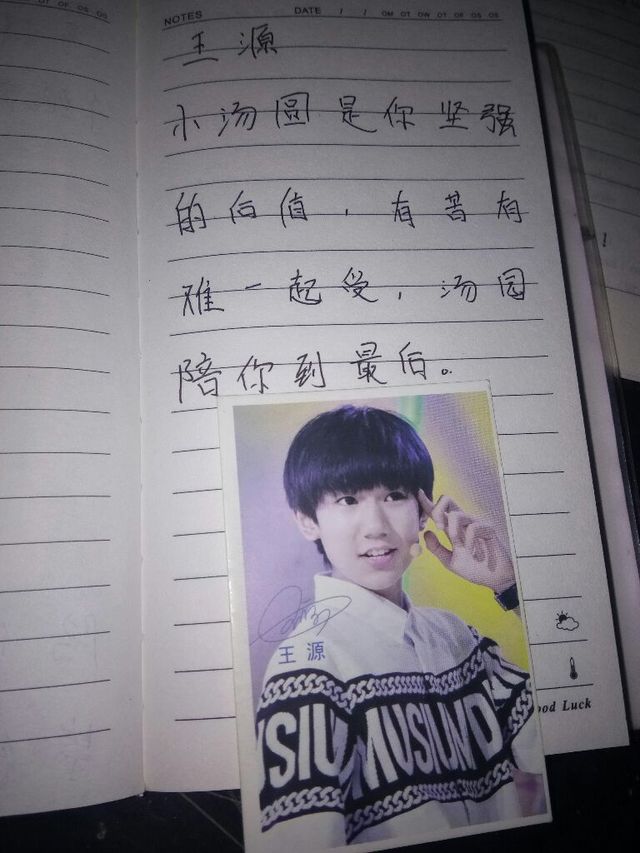 OT OF OS OS
NOTES DATE / / OM OT OW OT OF OS OS
王源
小汤圆是你坚强
的后值，有苦有
难一起受，汤园
陪你到最后。
王源
USIU MUSIUM
ood Luck